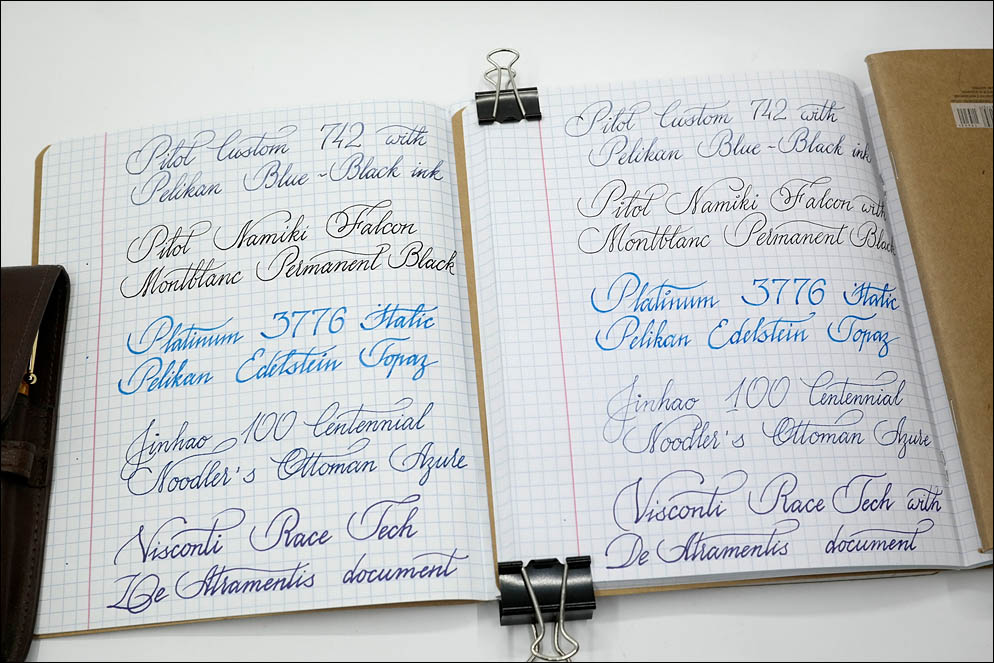 Pilot Custom 742 with
Pelikan Blue-Black ink
Pilot Namiki Falcon
Montblanc Permanent Black
Platinum 3776 Italic
Pelikan Edelstein Topaz
Jinhao 100 Centennial
Noodler's Ottoman Azure
Visconti Race Tech
De Atramentis document
Pilot Custom 742 with
Pelikan Blue-Black ink
Pilot Namiki Falcon with
Montblanc Permanent Black
Platinum 3776 Italic
Pelikan Edelstein Topaz
Jinhao 100 Centennial
Noodler's Ottoman Azure
Visconti Race Tech with
De Atramentis document